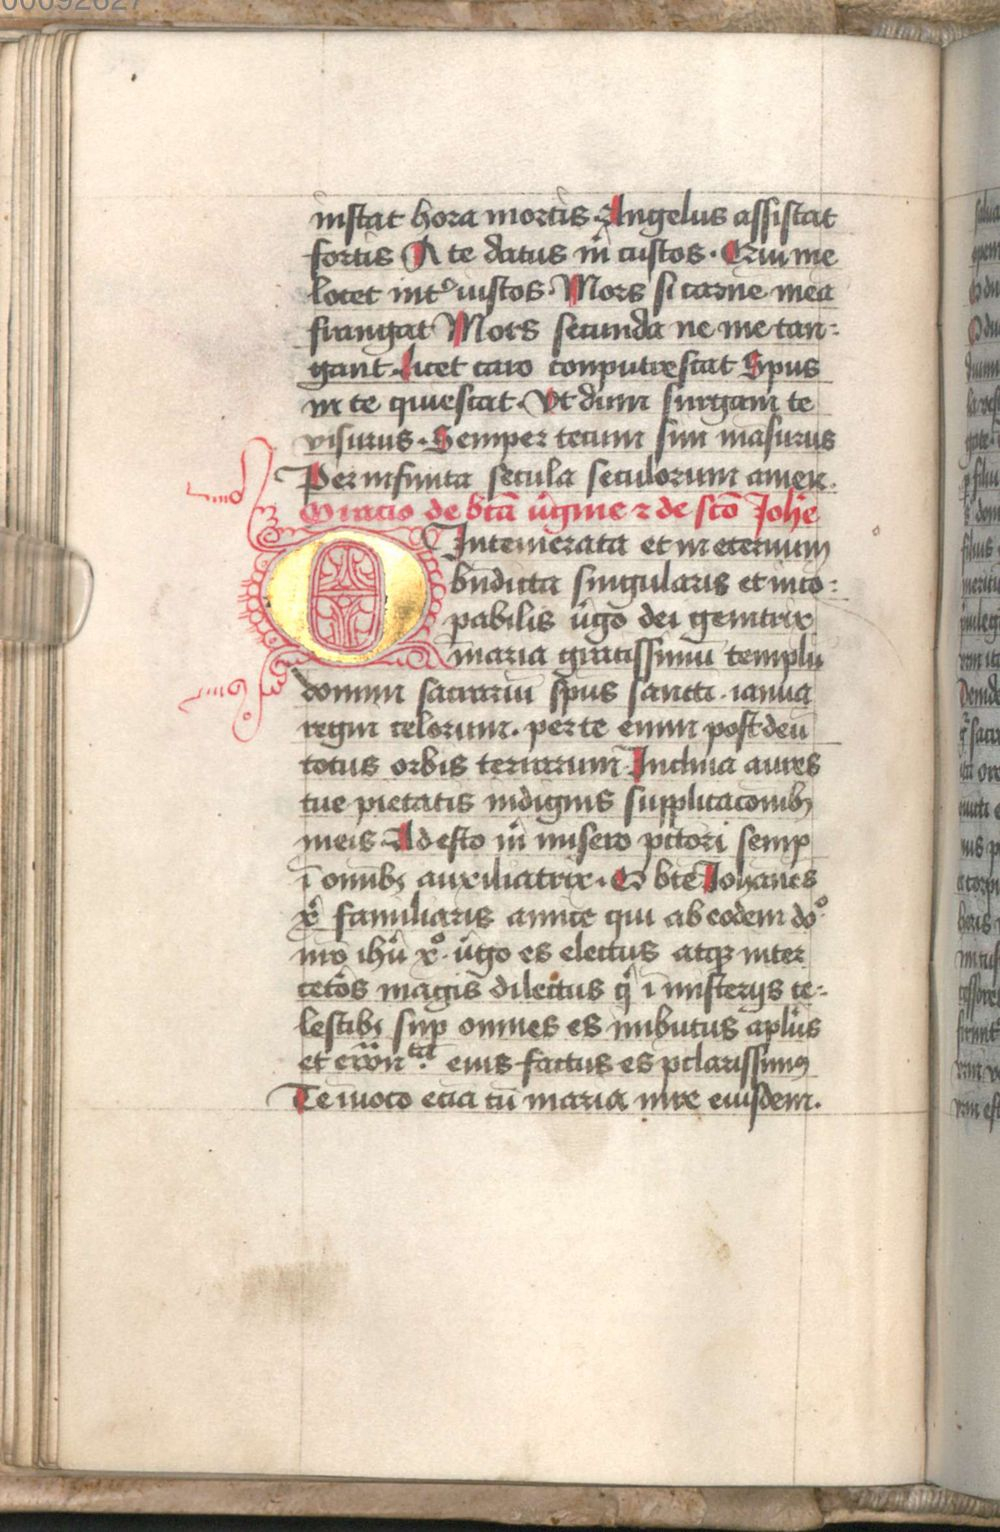 00092627
instat hora mortis. Angelus assistat
fortis A te datus m̄ custos. Qui me
locet int̾ iustos. Mors si carne mea
frangat Mors secunda ne me tan:
gant. Licet caro conputrescat Spus
in te quiescat. Vt dum surgam te
visurus. Semper tecum sim māsurus
Per infinita secula seculorum amen.
Oracio de btā v̄gine ⁊ de scō Johē
O Intemerata et in eternum
bn̄dicta singularis et inco:
pabilis v̄go dei genitrix
maria gratissimū templū
domini sacrariū sp̄us sancti. ianua
regni celorum. per te enim post deū
totus orbis terrarum Inclina aures
tue pietatis indignis supplicacōnibꝫ
meis. Adesto m̄ misero pctori semp
ī omībꝫ auxiliatrix. O bt̄e Johānes
xͥ familiaris amice qui ab eodem do
mīo ihū xͦ. v̄go es electus atqꝫ inter
cet̄os magis dilectus qͥ ī misterijs ce:
lestibꝫ sup omnes es imbutus apl̄us
eius factus es pclarissimꝰ
Te īuoco eciā cū maria mr̄e eiusdem.